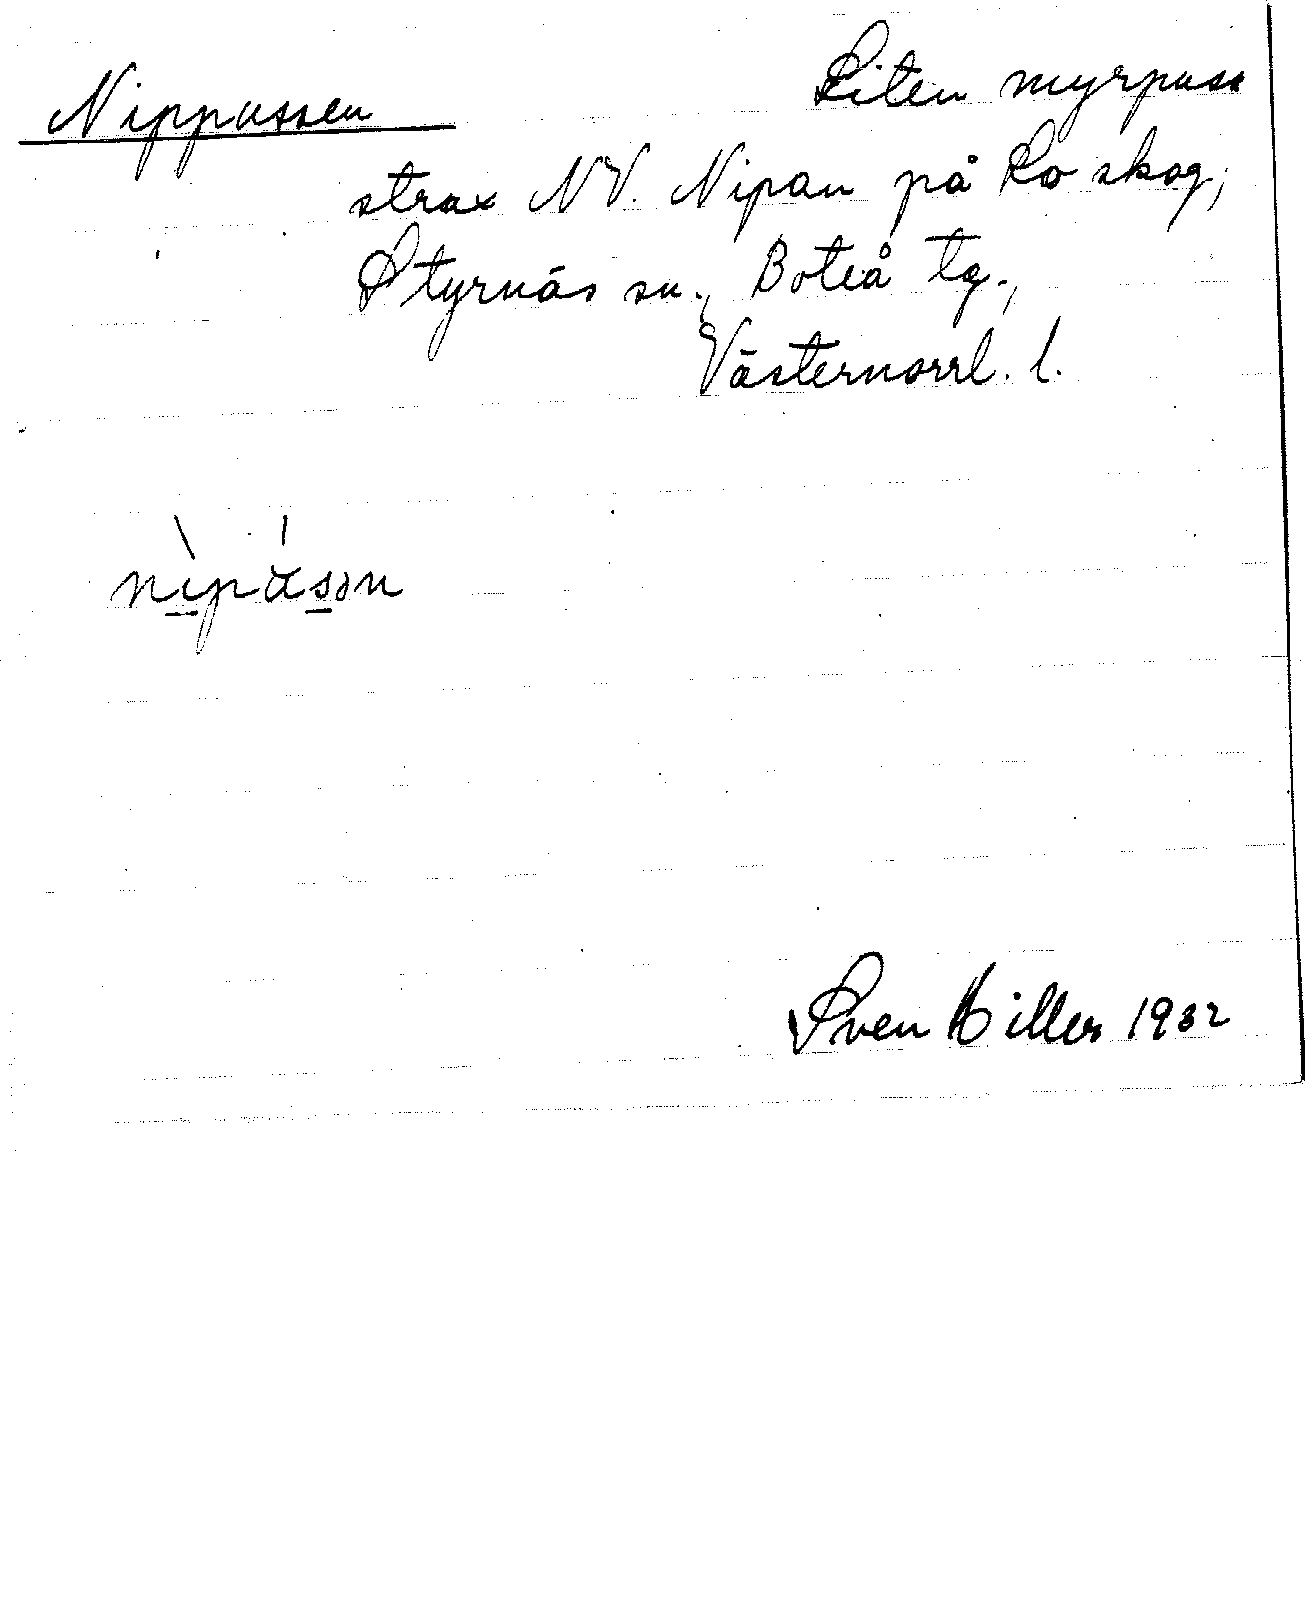 Nippussen Liten myrpuss
strax NV. Nipan på Lo skog,
Styrnäs sn., Boteå tg.,
Västernorrl. l.
Sven Hillert 1932